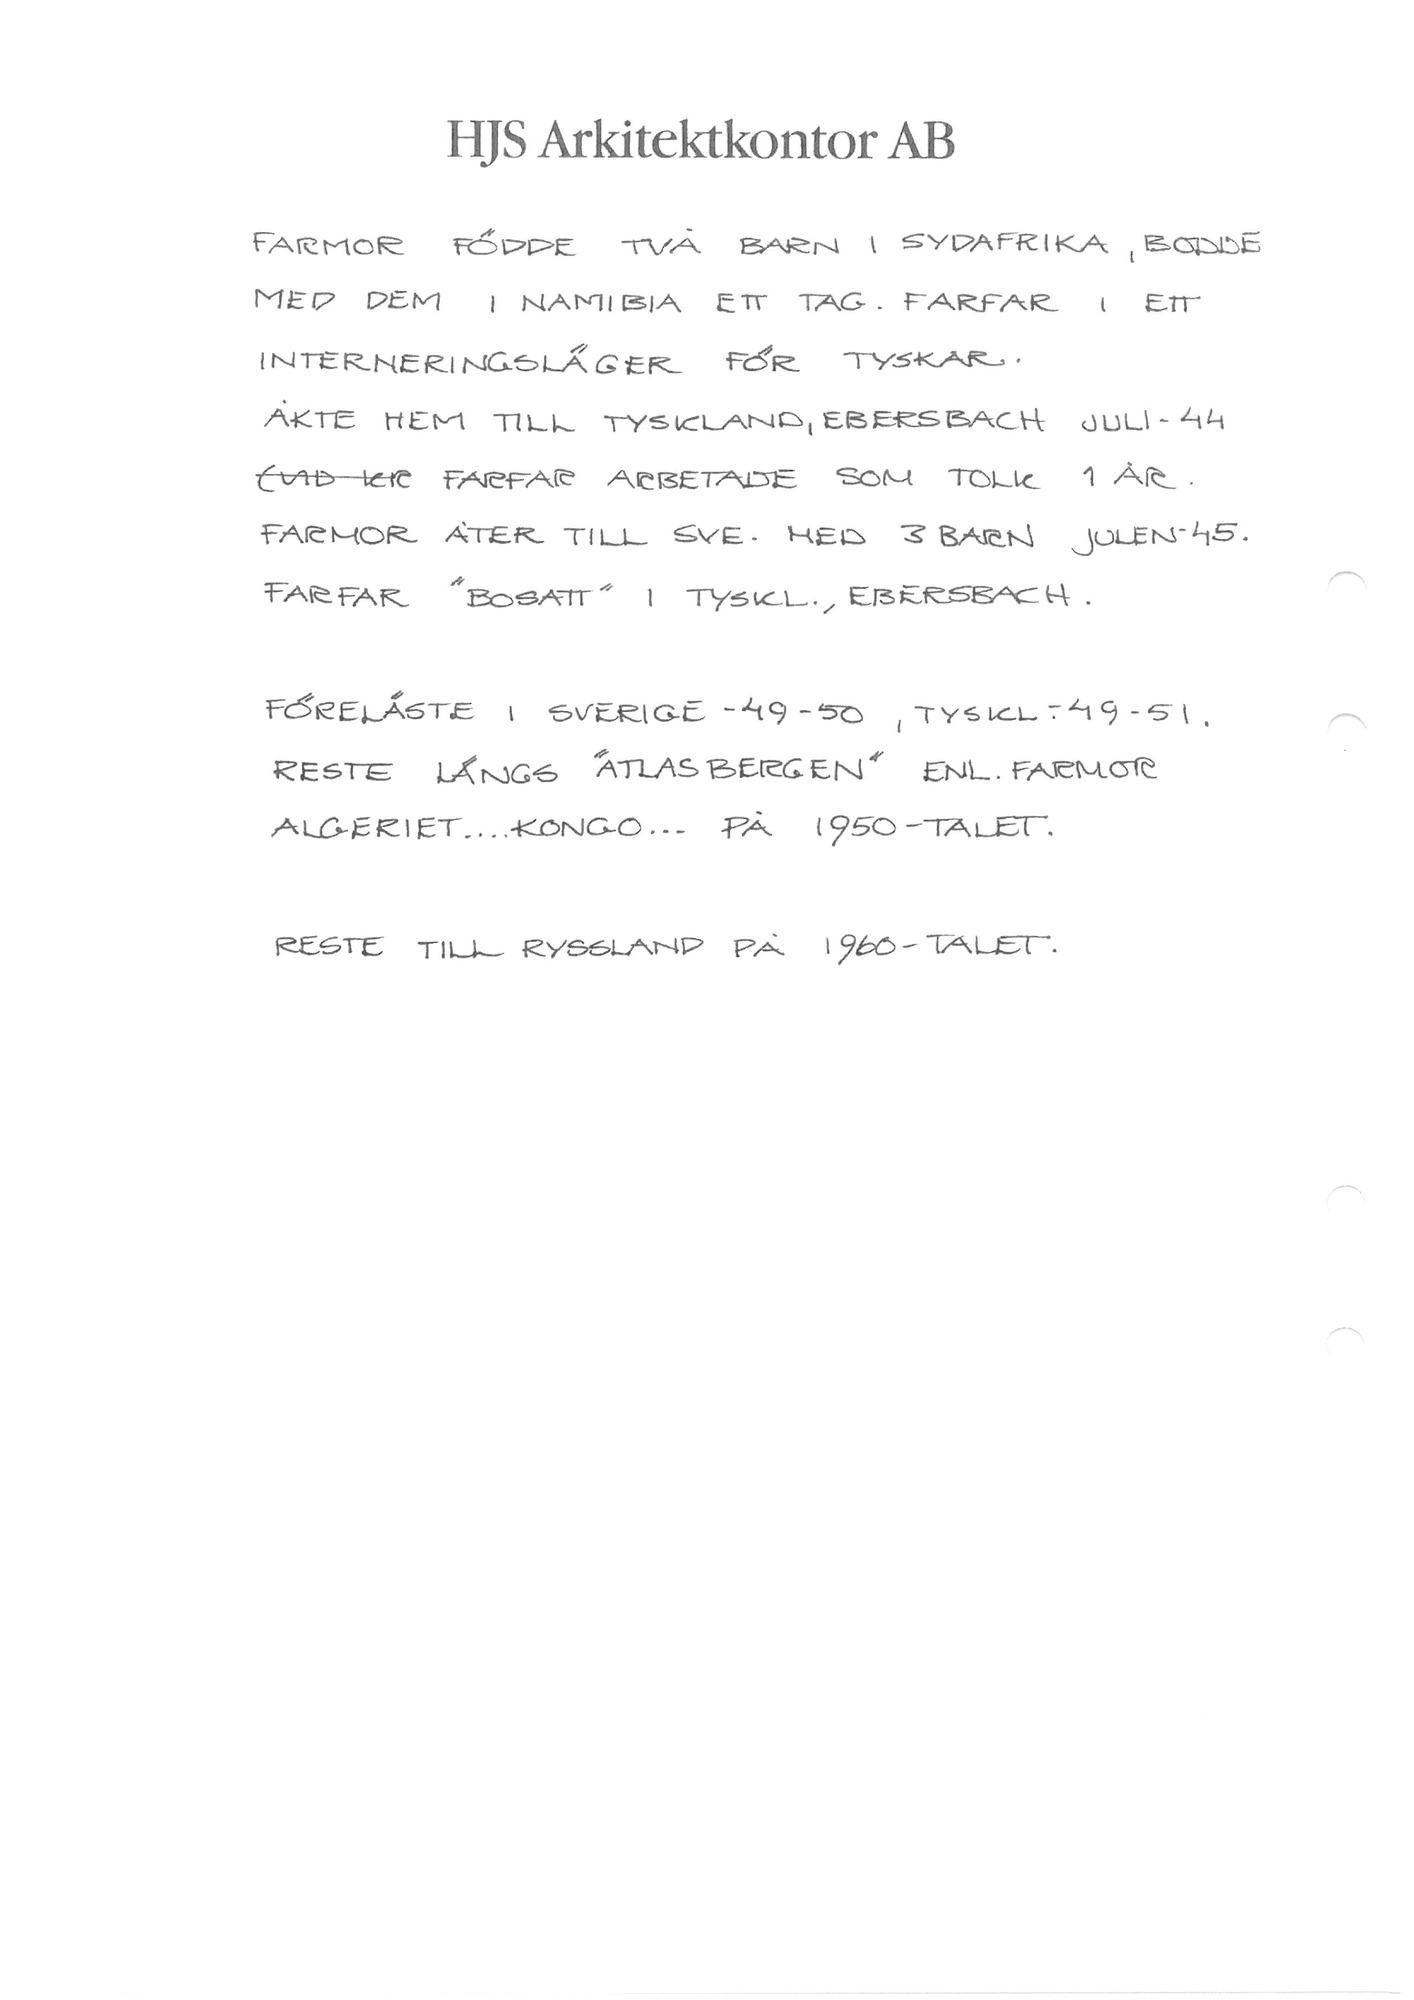 HJS Arkitektkontor AB
FARMOR FÖDDE TVÅ BARN I SYDAFRIKA, BODDE
MED DEM I NAMIBIA ETT TAG. FARFAR I ETT
INTERNERINGSLÄGER FÖR TYSKAR.
ÅKTE HEM TILL TYSKLAND, EBERSBACH JULI-44
FARFAR ARBETADE SOM TOLK 1 ÅR.
FARMOR ÅTER TILL SVE. MED 3 BARN JULEN-45.
FARFAR "BOSATT" I TYSKL., EBERSBACH.
FÖRELÄSTE I SVERIGE -49-50, TYSKL.-49-51.
RESTE LÄNGS "ATLASBERGEN" ENL. FARMOR
ALGERIET....KONGO... PÅ 1950-TALET.
RESTE TILL RYSSLAND PÅ 1960-TALET.